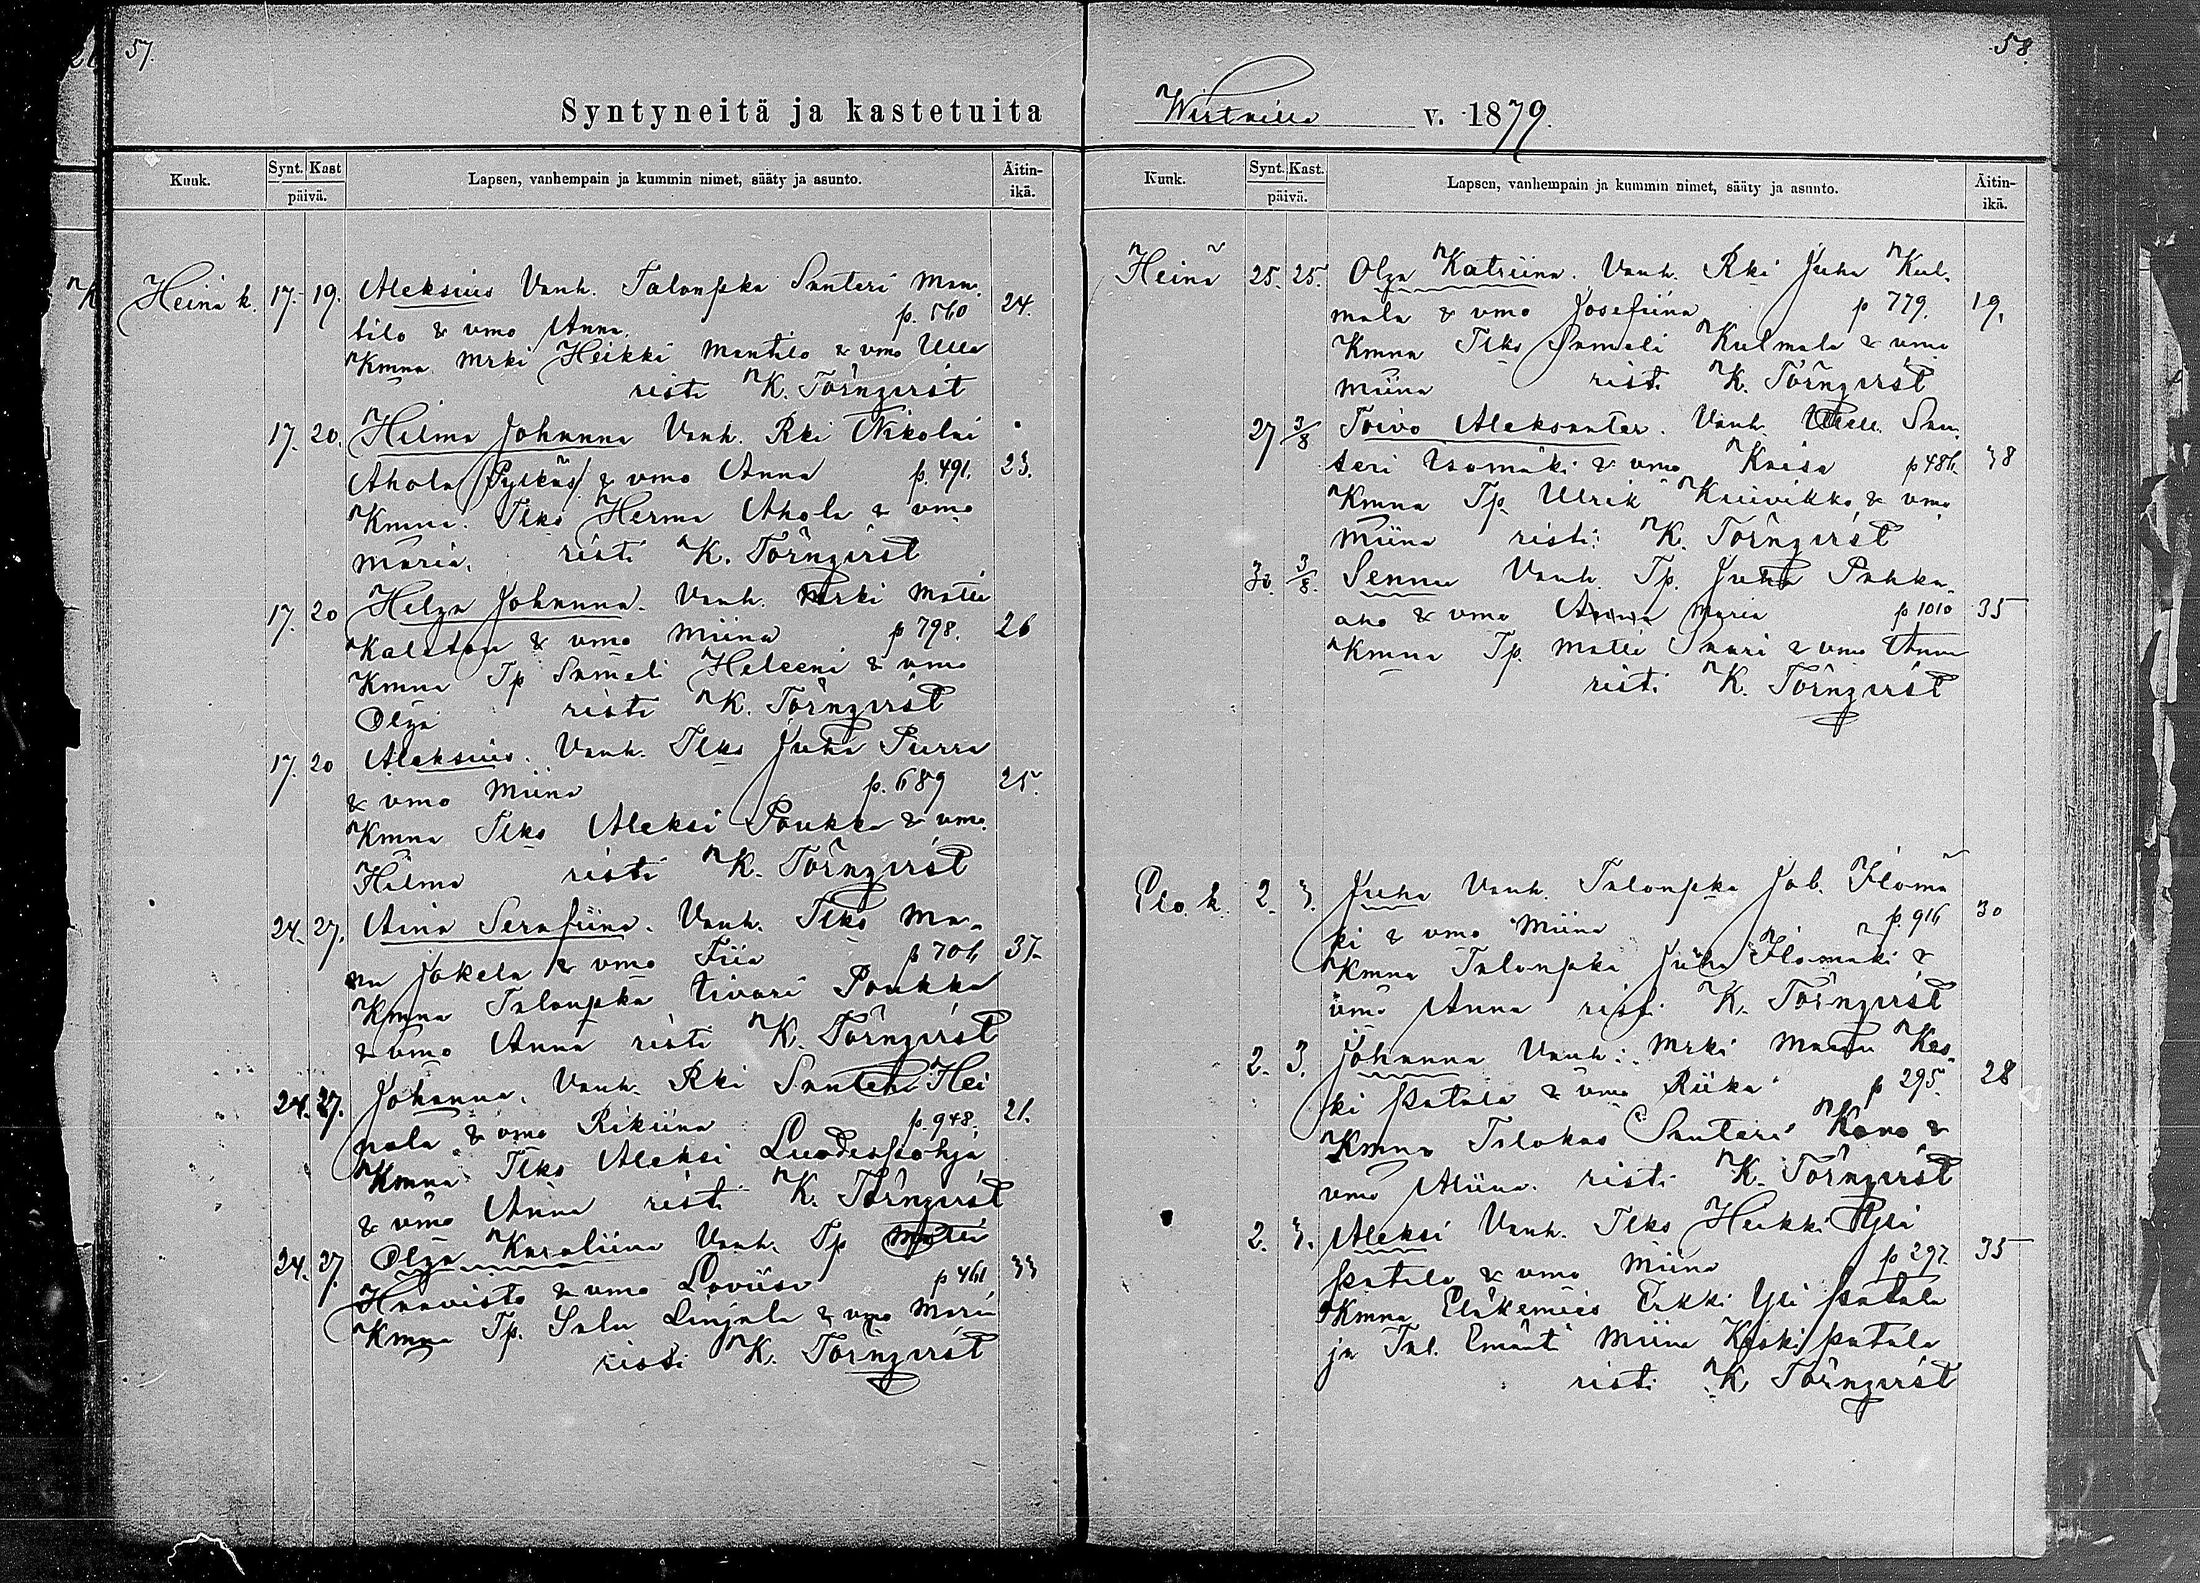 57.
Syntyneitä ja kastetuita
Kuuk.
Synt. Kast
päivä.
Lapsen, vanhempain ja kummin nimet, sääty ja asunto.
Äitin-
ikä.
Heinä k. 17. 19. Aleksius Vanh. Talonpka Santeri Man-
tilo & vmo Anna. p. 560 24.
Kmna. Mrki Heikki Mantilo & vmo Ulla
risti K. Törnqvist
17. 20. Hilma Johanna Vanh. Rki Nikolai
Ahola (Pylkäs) & vmo Anna p. 491. 23.
Kmna. Ilks Herma Ahola & vmo
Maria. risti K. Törnqvist
17. 20 Helga Johanna. Vanh. Mrki Matti
& vmo Miina p 798. 26
Kmna Tp Sameli & vmo
Olga risti K. Törnqvist
17. 20 Aleksius. Vanh. Ilks Juha Purra
& vmo Miina p. 689 25.
Kmna Ilks Aleksi Poukka & vmo
Hilma risti K. Törnqvist
24. 27. Aina Serafiina. Vanh. Ilks Ma-
nu Jokela & vmo Fiia p 706 37.
Kmna Talonpka Iivari Poukka
& vmo Anna risti K. Törnqvist
24. 27. Johanna. Vanh. Rki Santeri Hei
nola & vmo Rikiina p. 948. 21.
Kmna Ilks Aleksi Luodespohja
& vmo Anna risti K. Törnqvist
24. 27. Olga Karoliina Vanh. Tp Matti
Haavisto & vmo Loviisa p 461 33
Kmna Tp. Salu Linjala & vmo Maria
risti K. Törnqvist
58
Wirtailla v. 1879.
Kuuk.
Synt. Kast.
päivä.
Lapsen, vanhempain ja kummin nimet, sääty ja asunto.
Äitin-
ikä.
Heinä 25. 25. Olga Katriina. Vanh. Rki Juha Kul-
mala & vmo Josefiina p 779. 19.
Kmna Ilks Sameli Kulmala & vmo
Miina risti K. Törnqvist
27 3/8 Toivo Aleksanter. Vanh. San-
teri Isomäki & vmo Kaisa p 486. 38
Kmna Tp. Ulrik Kuivikko & vmo
Miina risti: K. Törnqvist
30. 3/8. Sennu Vanh. Tp. Juha Pahka-
aho & vmo Anna Maria p 1010 35
Kmna Tp. Matti Saari & vmo Anna
risti K. Törnqvist
Elo. k. 2. 3. Juha Vanh. Talonpka Jab. Ylömä
ki & vmo Miina p. 916 30
Kmna Talonpka Juha Ylömäki &
vmo Anna risti K. Törnqvist
2. 3. Johanna Vanh: Mrki Kes-
ki patala & vmo Riika p 295. 28
Kmna Talokas Santeri Kono &
vmo Miina. risti K. Törnqvist
2. 3. Aleksi Vanh. Ilks Heikki Yli
patala & vmo Miina p 297. 35
Kmna Eläkemies Erkki Yli patala
ja Tal. Emänt Miina Keski patala
risti K. Törnqvist